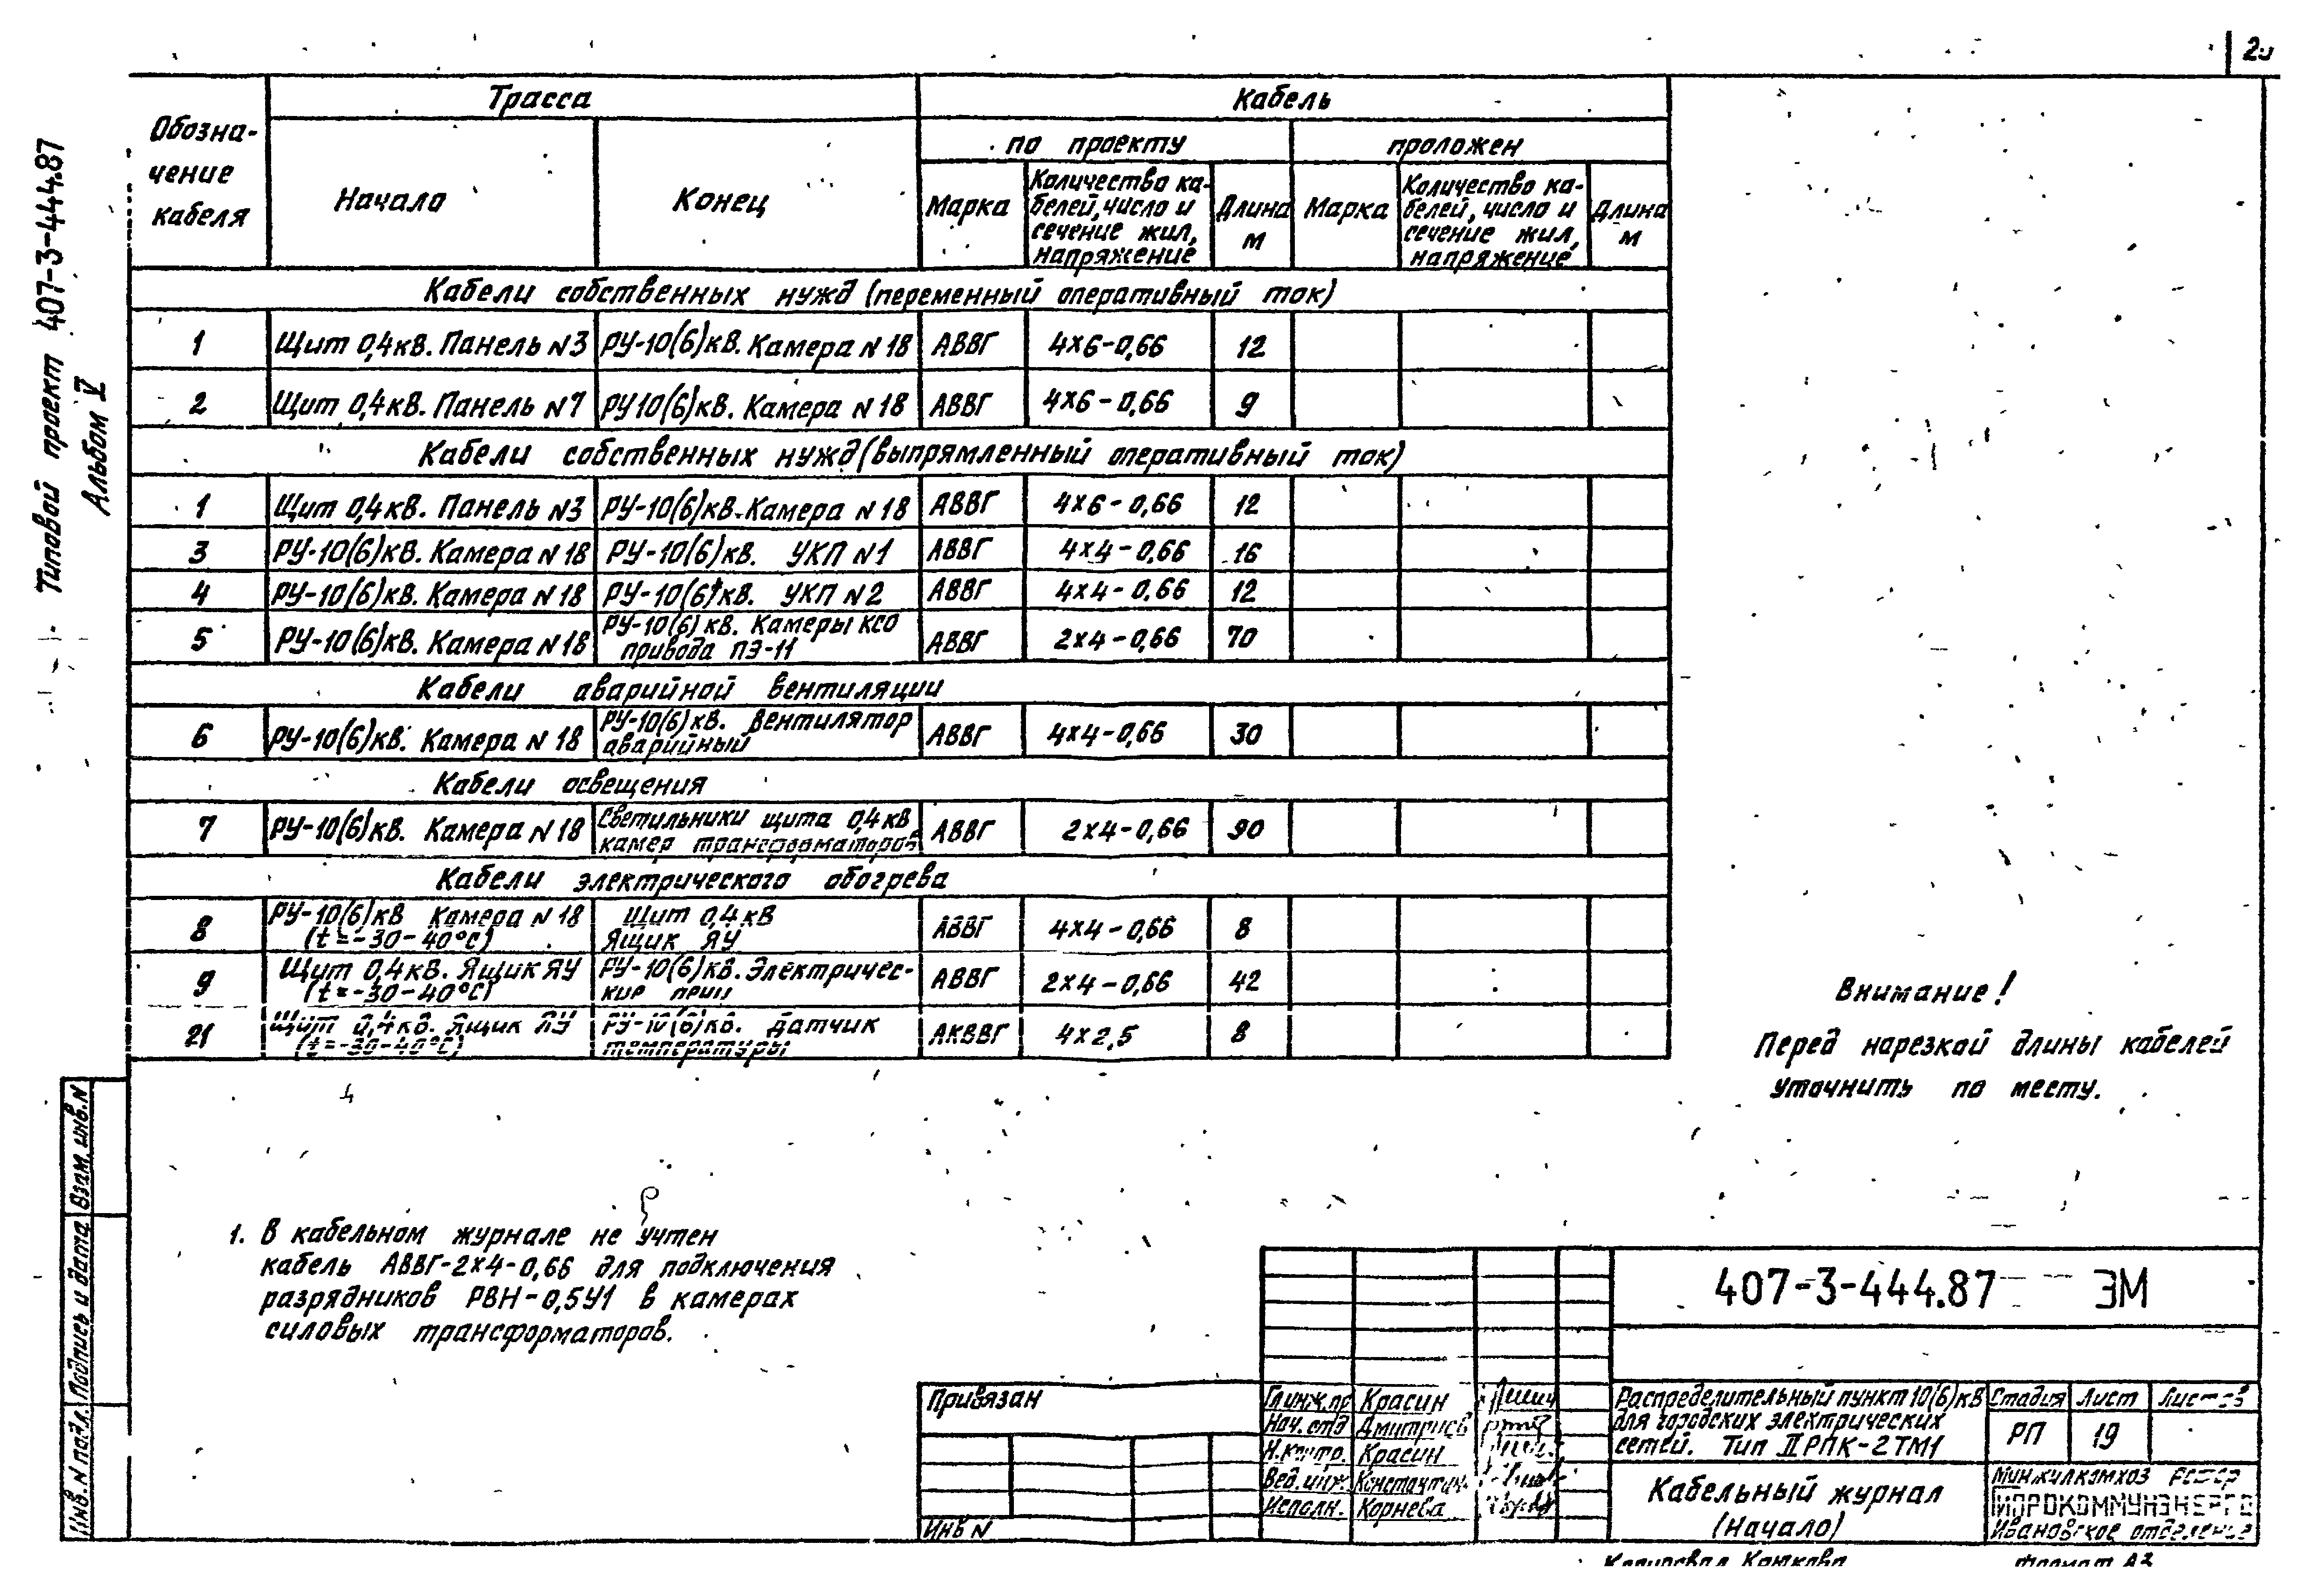 Типовой проект 407-3-444.87
Альбом V
Обозна-
чение
кабеля
Трасса
Кабель
Начало
Конец
по проекту
проложен
Марка
Количество ка-
белей, число и
сечение жил,
напряжение
Длина
м
Марка
Количество ка-
белей, число и
сечение жил,
напряжение
Длина
м
Кабели собственных нужд (переменный оперативный ток)
1 Щит 0,4кв. Панель N3 РУ-10(6)кв. Камера N 18 АВВГ 4×6-0,66 12
2 Щит 0,4кв. Панель N7 РУ10(6)кв. Камера N 18 АВВГ 4×6-0,66 9
Кабели собственных нужд (выпрямленный оперативный ток)
1 Щит 0,4кв. Панель N3 РУ-10(6)кв. Камера N 18 АВВГ 4×6-0,66 12
3 РУ-10(6)кв. Камера N 18 РУ-10(6)кв. УКП N1 АВВГ 4×4-0,66 16
4 РУ-10(6)кв. Камера N 18 РУ-10(6)кв. УКП N2 АВВГ 4×4-0.66 12
5 РУ-10(6)кв. Камера N 18 РУ-10(6)кв. Камеры КСО
привода ПЭ-11 АВВГ 2×4-0,66 70
Кабели аварийной вентиляции
6 РУ-10(6)кв. Камера N 18 РУ-10(6)кв. Вентилятор
аварийный АВВГ 4×4-0,66 30
Кабели освещения
7 РУ-10(6)кв. Камера N 18 Светильники щита 0,4кв
камер трансформаторов АВВГ 2×4-0,66 90
Кабели электрического обогрева
8 РУ-10(6)кв Камера N 18
(t=-30-40°С) Щит 0,4кв
Ящик ЯУ АВВГ 4×4-0,66 8
9 Щит 0,4кв. Ящик ЯУ
(t=-30-40°С) РУ-10(6)кв. Электричес-
кие АВВГ 2×4-0,66 42
21 Щит 0,4кв. Ящик ЯУ
(t=-30-40°С) РУ-10(6)кв. Датчик
температуры АКВВГ 4×2,5 8
Внимание!
Перед нарезкой длины кабелей
уточнить по месту.
1. В кабельном журнале не учтен
кабель АВВГ-2×4-0,66 для подключения
разрядников РВН-0,5У1 в камерах
силовых трансформаторов.
Инв. N подл. Подпись и дата Взам. инв. N
Привязан
Инв N
Гл.инж.пр Красин
Нач. отд Дмитриев
Н.контр. Красин
Вед. инж.
Исполн. Корнева
407-3-444.87 ЭМ
Распределительный пункт 10(6)кв
для городских электрических
сетей. Тип II РПК-2ТМ1
Стадия Лист Листов
РП 19
Кабельный журнал
(Начало)
Минжилкомхоз РСФСР
Гипрокоммунэнерго
Ивановское отделение
Копировал Формат А3